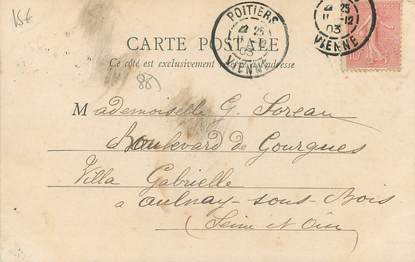 15€
POITIERS
VIENNE
25
11-12
03
VIENNE
CARTE POSTALE
Ce côté est exclusivement à l'adresse
86
Mademoiselle G. Soreau
Boulevard de Gourgues
Villa Gabrielle
à Aulnay-sous-Bois
(Seine et Oise)